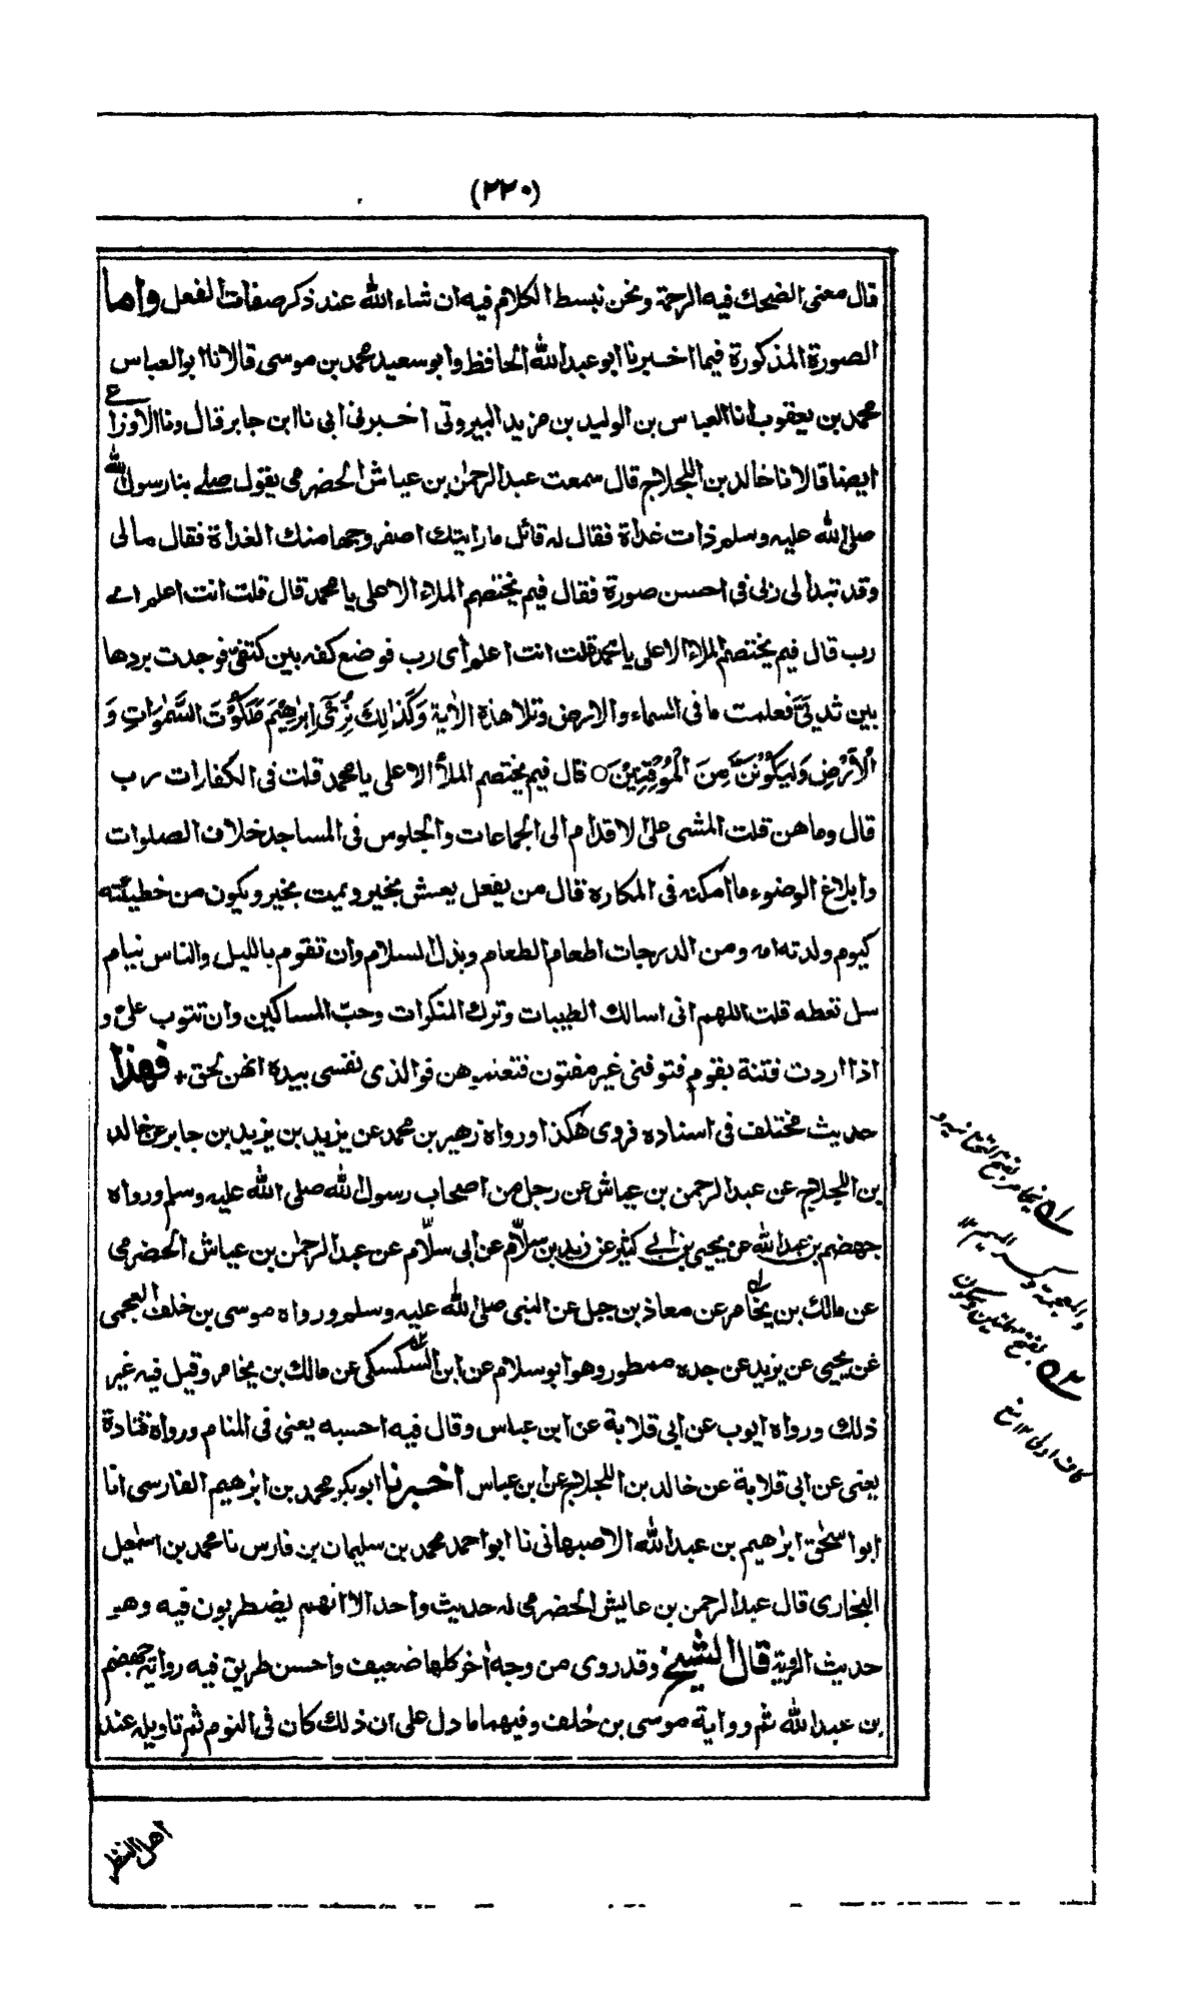 (۲۲۰)
قال معنى الضحك فيه الرحمة ونحن نبسط الكلام فيه ان شاء الله عند ذكر صفات الفعل واما
الصورة المذكورة فيما اخبرنا ابو عبد الله الحافظ وابو سعيد محمد بن موسى قالا نا ابو العباس
محمد بن يعقوب انا العباس بن الوليد بن مزيد البيروتى اخبرنى ابى نا ابن جابر قال ونا الاوزاعے
ايضا قالا نا خالد بن اللجلاج قال سمعت عبد الرحمٰن بن عياش الحضرمى يقول صلے بنا رسول الله
صلى الله عليه وسلم ذات غداة فقال له قائل ما رايتك اصفر وجها منك الغداة فقال مالى
وقد تبدا لى ربى فى احسن صورة فقال فيم يختصم الملاء الاعلى يا محمد قال قلت انت اعلم اے
رب قال فيم يختصم الملاء الاعلى يا محمد قلت انت اعلم أى رب فوضع كفه بين كتفىّ فوجدت بردها
بين ثديىّ فعلمت ما فى السماء والارض وتلا هذه الاية وَكَذٰلِكَ نُرِىٓ اِبْرٰهِيْمَ مَلَكُوْتَ السَّمٰوٰاتِ وَ
الْاَرْضِ وَلِيَكُوْنَ مِنَ الْمُوْقِنِيْنَ○ قال فيم يختصم الملأ الاعلى يا محمد قلت فى الكفارات رب
قال وما هن قلت المشى على الاقدام الى الجماعات والجلوس فى المساجد خلاف الصلوات
وابلاغ الوضوء ما امكنه فى المكاره قال من يفعل يعش بخير ويميت بخير ويكون من خطيئته
كيوم ولدته امه ومن الدرجات اطعام الطعام وبذل السلام وان تقوم بالليل والناس نيام
سل تعطه قلت اللهم انى اسالك الطيبات وترك المنكرات وحبّ المساكين وان تتوب علىّ و
اذا اردت فتنة بقوم فتوفنى غير مفتون فتعلموهن فوالذى نفسى بيده انهن لحق + فهذا
حديث مختلف فى اسناده فروى هٰكذا ورواه زهير بن محمد عن يزيد بن يزيد بن جابر عن خالد
بن اللجلاج عن عبد الرحمن بن عياش عن رجل من اصحاب رسول الله صلى الله عليه وسلم ورواه
جهضم بن عبد الله عن يحيى بن ابے كثير عن زيد بن سلّام عن ابى سلّام عن عبد الرحمٰن بن عياش الحضرمى
عن مالك بن يخامر عن معاذ بن جبل عن النبى صلى الله عليه وسلم ورواه موسى بن خلف العجمى
عن يحيى عن يزيد عن جده ممطور وهو ابو سلام عن ابن السكسكى عن مالك بن يخامر وقيل فيه غير
ذلك ورواه ايوب عن ابى قلابة عن ابن عباس وقال فيه احسبه يعنى فى المنام ورواه قتادة
يعنى عن ابى قلابة عن خالد بن اللجلاج عن ابن عباس اخبرنا ابو بكر محمد بن ابرٰهيم الفارسى انا
ابو اسحٰق ابرٰهيم بن عبد الله الاصبهانى نا ابو احمد محمد بن سليمان بن فارس نا محمد بن اسمٰعيل
البخارى قال عبد الرحمن بن عايش الحضرمى له حديث واحد الا انهم يضطربون فيه وهو
حديث الروية قال الشيخ وقد روى من وجه اٰخر كلها ضعيف واحسن طريق فيه رواية جهضم
بن عبد الله ثم رواية موسى بن خلف وفيهما ما دل على ان ذلك كان فى النوم ثم تاويله عند
له يخامر بفتح التحتانية و
الخاء المعجمة وكسر الميم ۱۲
له بفتح مهملتين وسكون
كاف اولى ۱۲
اهل النظر